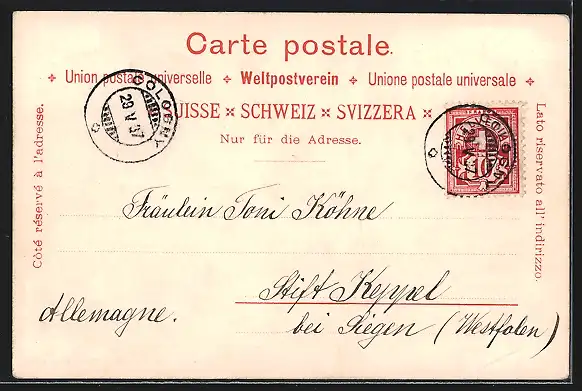 Carte postale.
✢ Union postale universelle ✢ Weltpostverein ✢ Unione postale universale ✢
UISSE × SCHWEIZ × SVIZZERA ×
Nur für die Adresse.
Côté réservé à l'adresse.
Lato riservato all' indirizzo.
COLOGNY
29 V 97
10
Fräulein Toni Köhne
Stift Keppel
bei Siegen (Westfalen)
Allemagne.